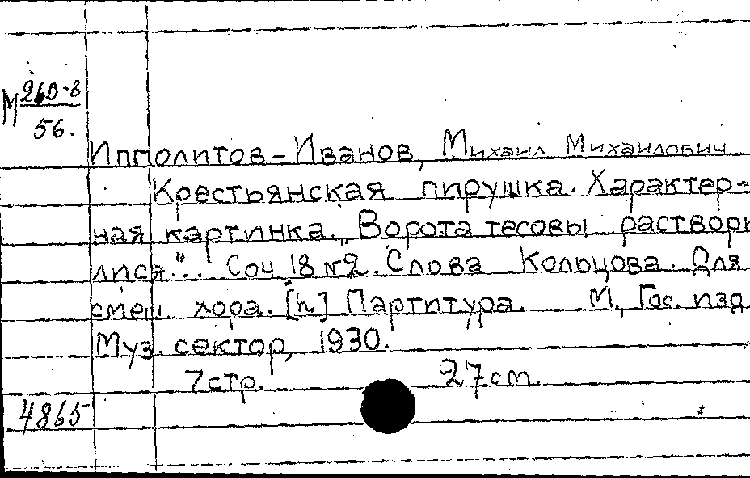 М 260-8
56.
Ипполитов-Иванов, Михаил Михайлович
Крестьянская пирушка. Характер-
ная картинка. „Ворота тесовы растворы
лися". Соч 18 №2. Слова Кольцова. Для
смеш. хора. [п.] Партитура. М., Гос. изд
Муз. сектор, 1930.
7стр. 27 cm.
4865